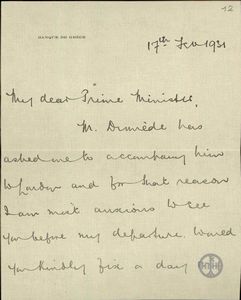 12
BANQUE DE GRÈCE
17th Feb 1931
My dear Prime Minister,
M. Diomède has
asked me to accompany him
to London and for that reason
I am most anxious to see
you before my departure. Would
you kindly fix a day